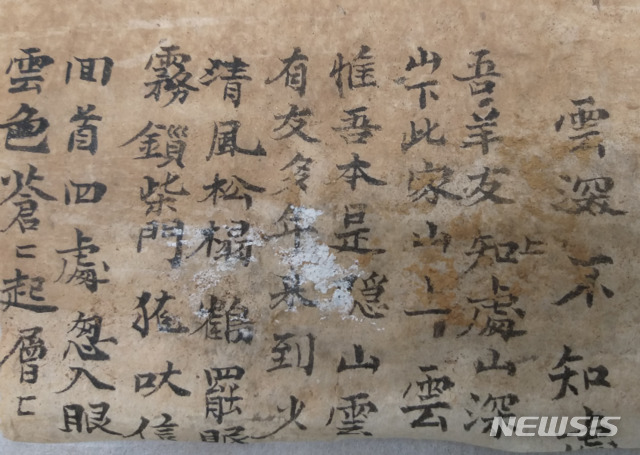 雲深不知處
吾羊友知上處山深
山下此家山上雲
惟吾本是隱山雲
有友多年來到少
清風松榻鶴罷眠
霧鎖柴門狵吠信
回首四處怱入眼
雲色蒼〻起層〻
NEWSIS